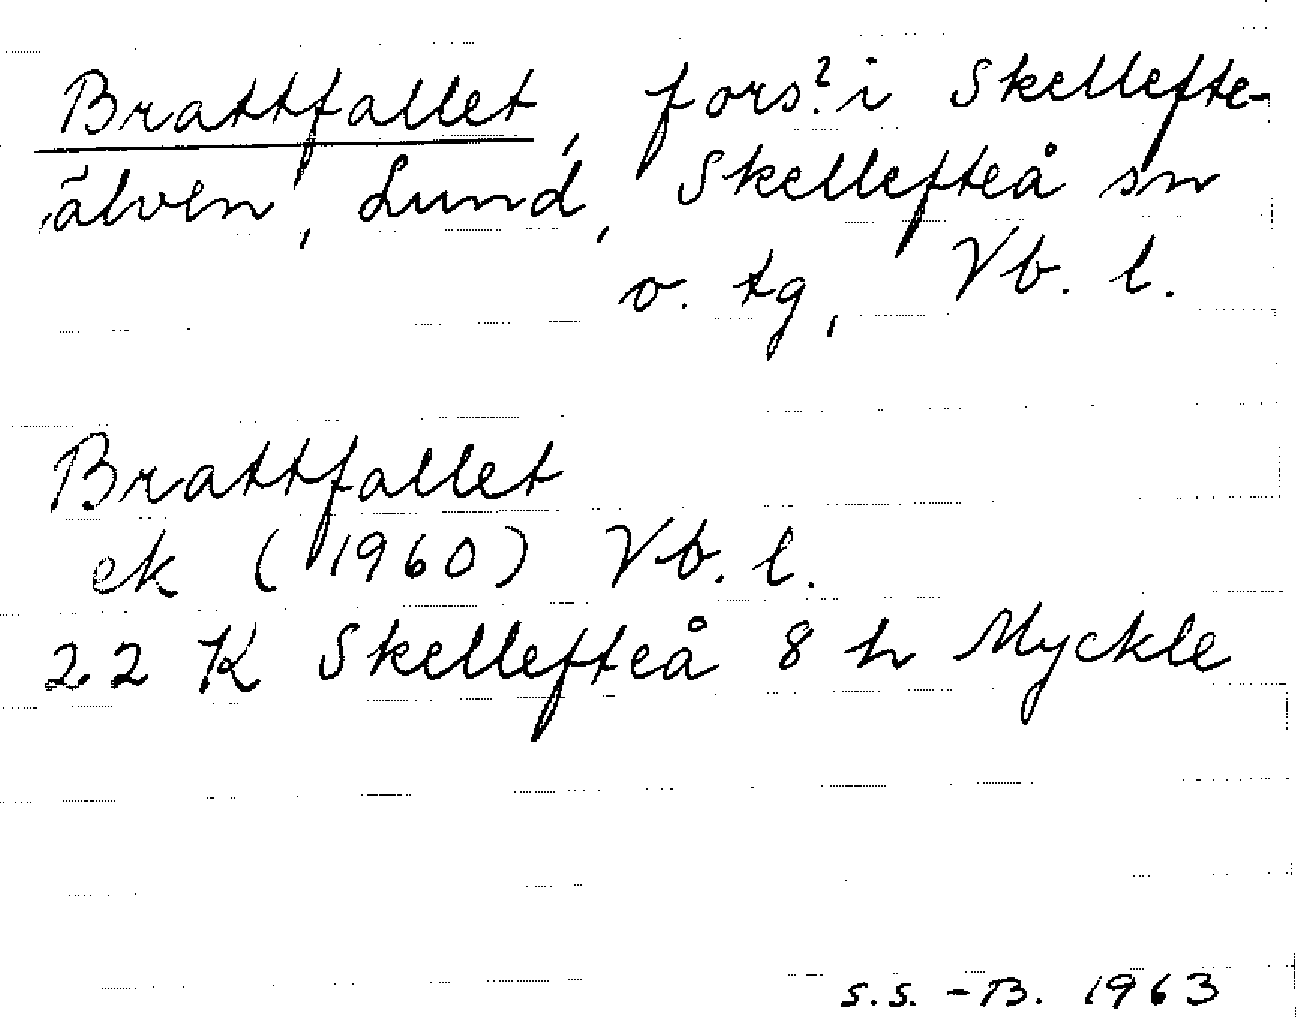 Brattfallet, fors? i Skellefte-
älven, Lund, Skellefteå sn
o. tg, Vb. l.
Brattfallet
ek (1960) Vb. l.
22 K Skellefteå 8 h Myckle
S.S. -B. 1963